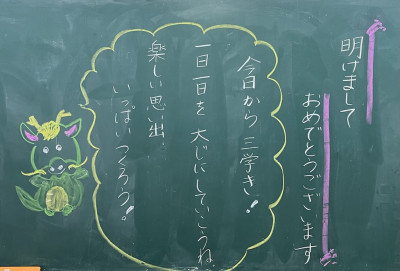 明けまして
おめでとうございます
今日から 三学き！
一日一日を 大じにしていこうね
楽しい思い出、
いっぱいつくろう！